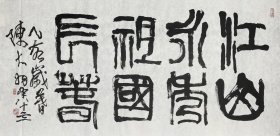 江山
永秀
祖國
長春
歲暮
陳大羽